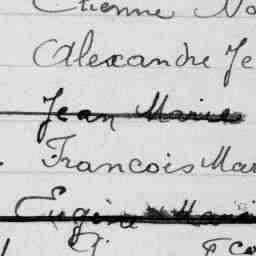 Etienne No
Alexandre Je
Jean Marie
Francois Mar
Eugène Mari